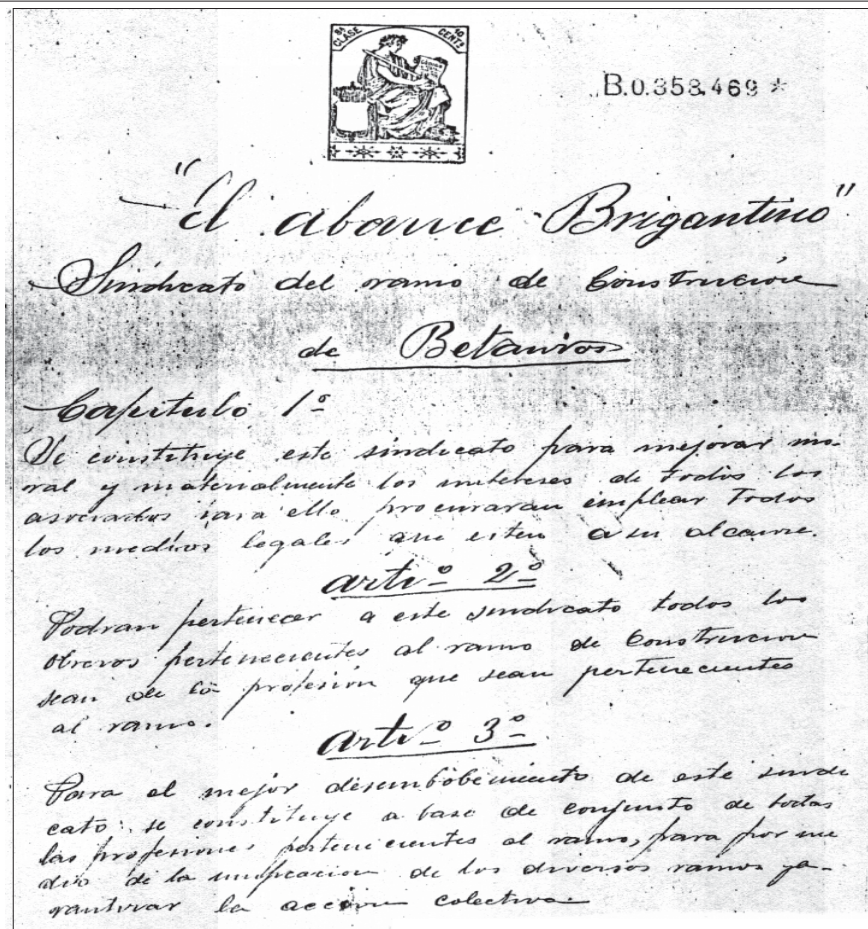 8ª CLASE 10 CENTs
B.0.358.469 *
"El abance Brigantino"
Sindicato del ramo de Construcion
de Betanzos
Capitulo 1º
Se constituye este sindicato para mejorar mo-
ral y materialmente los intereses de todos los
asociados para ello procuraran emplear todos
los medios legales que esten a su alcance.
artº 2º
Podran pertenecer a este sindicato todos los
obreros pertenecientes al ramo de Construcion
sean de la profesión que sean pertenecientes
al ramo.
artº 3º
Para el mejor desembolbimiento de este sindi
cato: se constituye a base de conjunto de todas
las profesiones pertenecientes al ramo, para por me
dio de la unificacion de los diversos ramos ga-
rantizar la acción colectiva